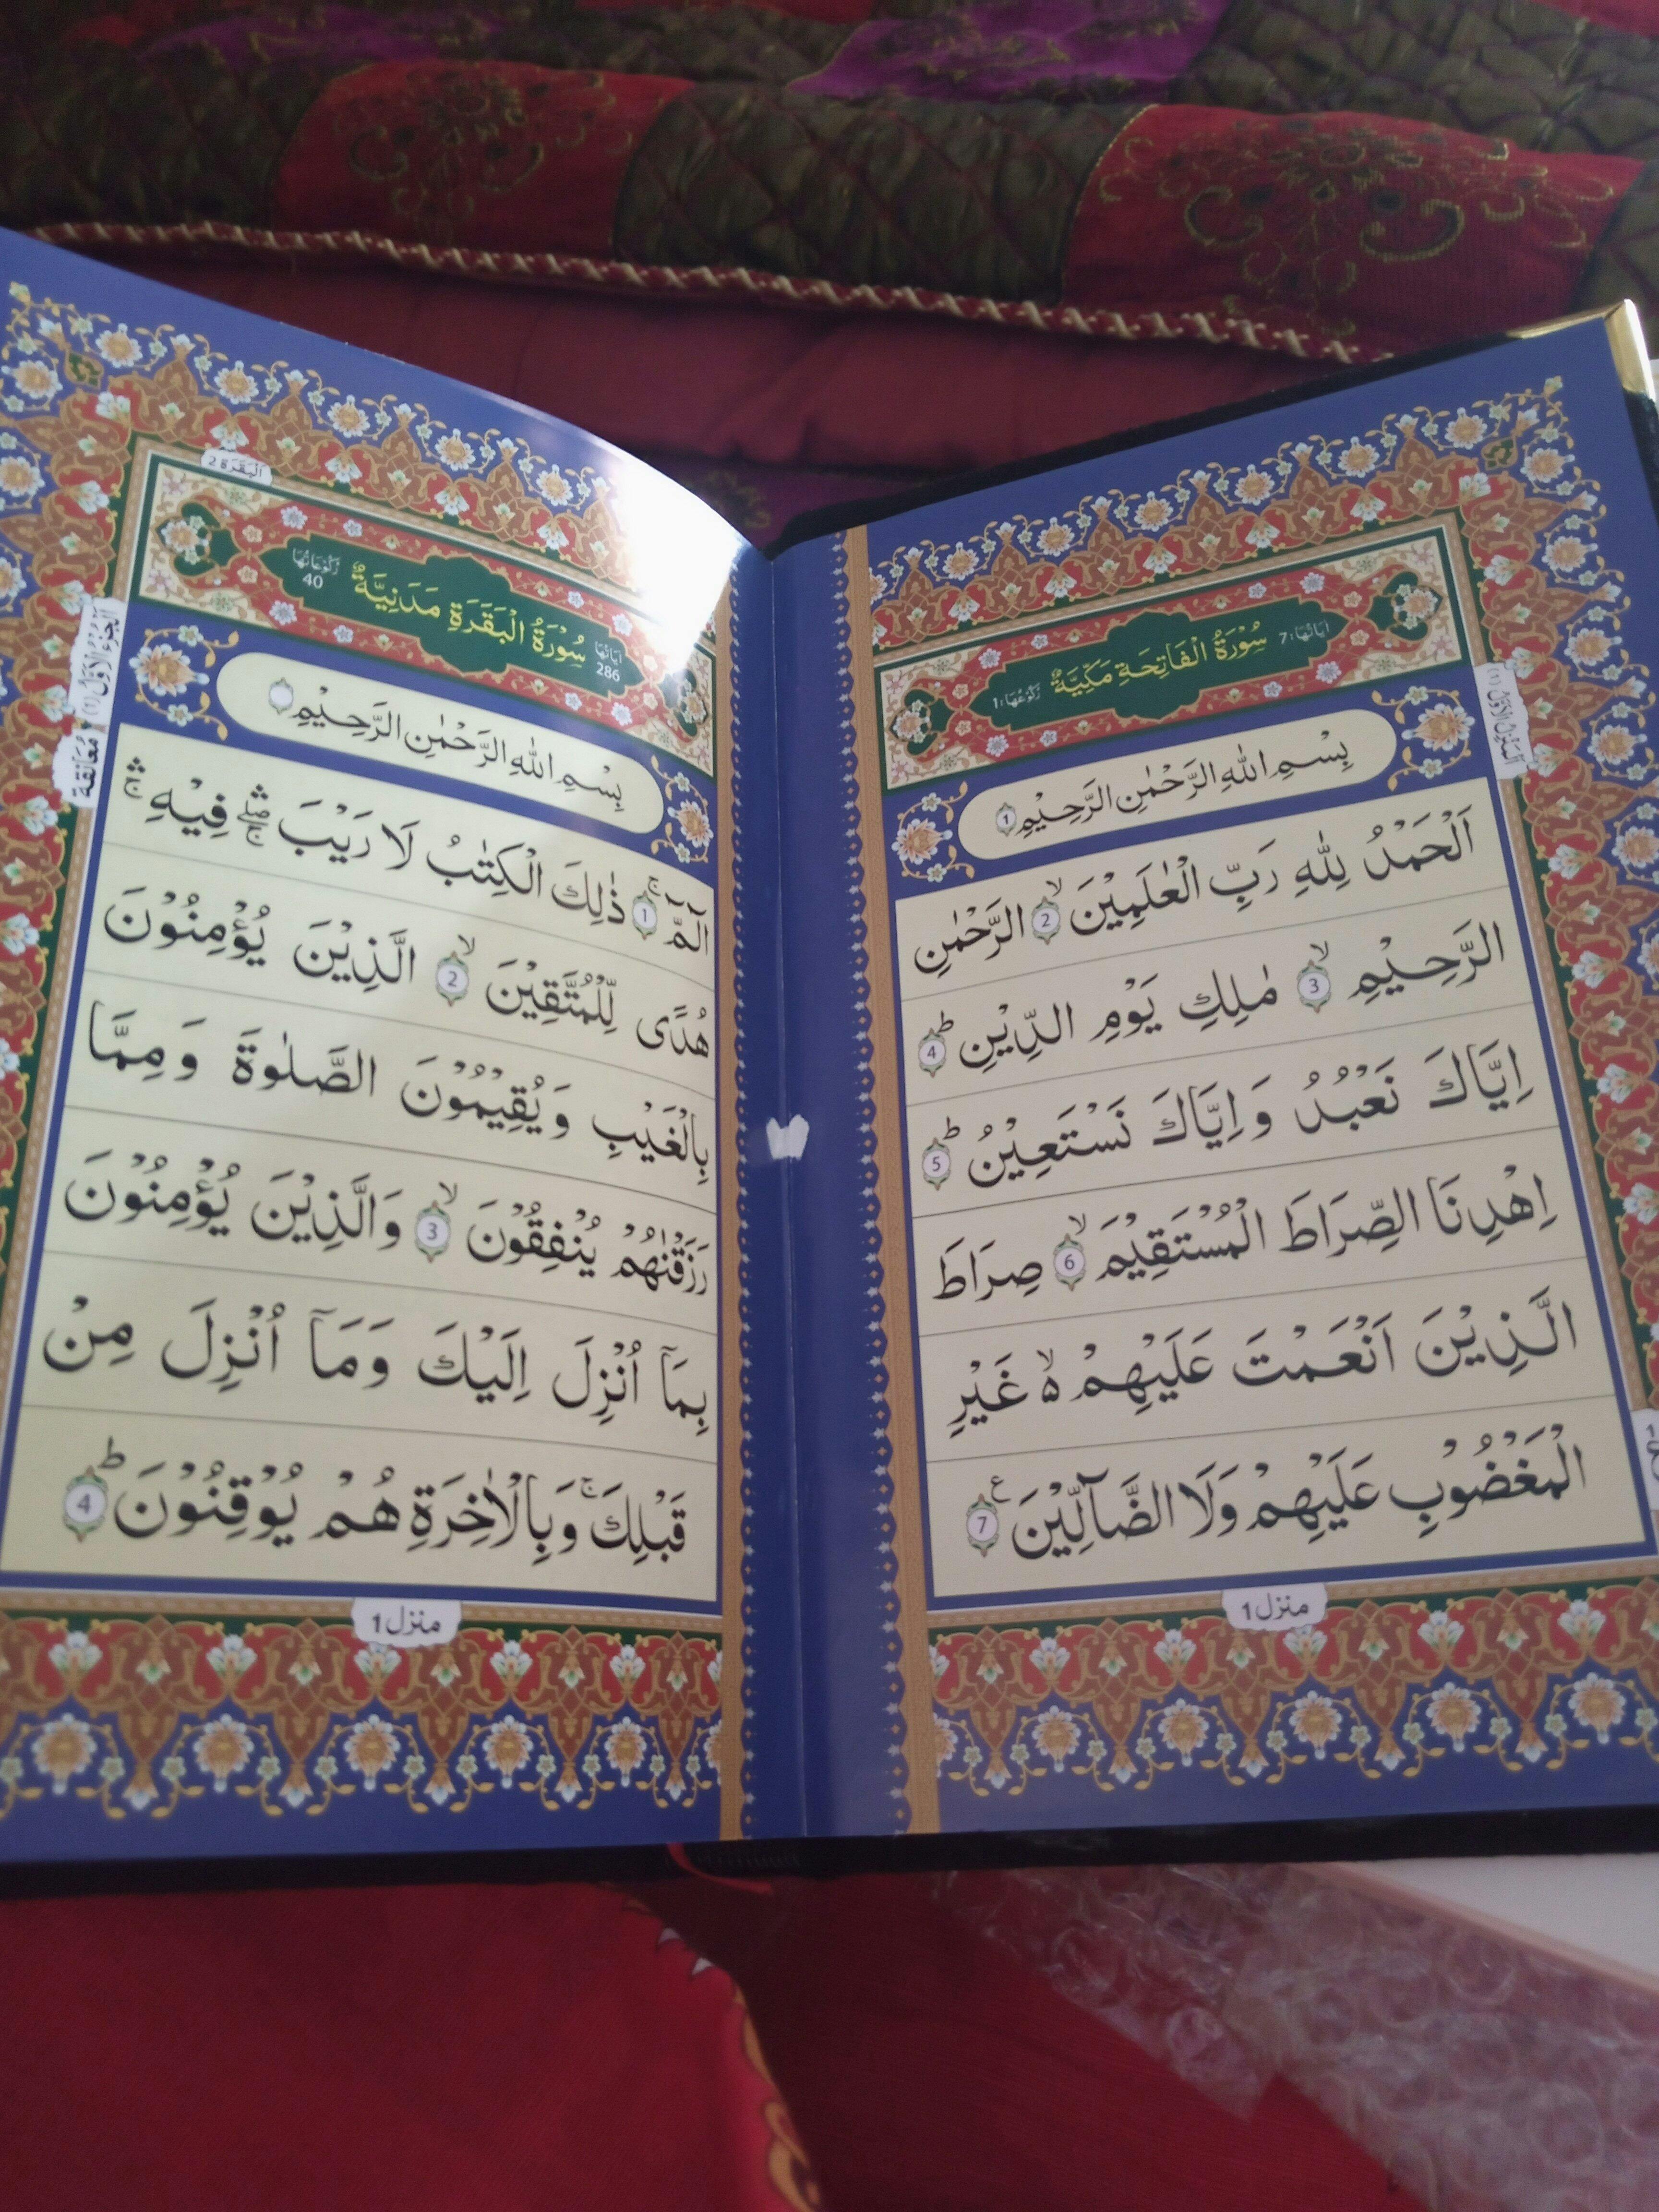 سُوْرَةُ الْفَاتِحَةِ مَكِّيَّةٌ
اٰيَاتُهَا:7
رُكُوْعُهَا:1
بِسْمِ اللّٰهِ الرَّحْمٰنِ الرَّحِيْمِ 1
اَلْحَمْدُ لِلّٰهِ رَبِّ الْعٰلَمِيْنَ ۙ 2 الرَّحْمٰنِ
الرَّحِيْمِ ۙ 3 مٰلِكِ يَوْمِ الدِّيْنِ ؕ 4
اِيَّاكَ نَعْبُدُ وَ اِيَّاكَ نَسْتَعِيْنُ ؕ 5
اِهْدِنَا الصِّرَاطَ الْمُسْتَقِيْمَ ۙ 6 صِرَاطَ
الَّذِيْنَ اَنْعَمْتَ عَلَيْهِمْ ۙ۵ غَيْرِ
الْمَغْضُوْبِ عَلَيْهِمْ وَلَا الضَّآلِّيْنَ 7 ع
منزل 1
اَلْبَقَرَة 2
سُوْرَةُ الْبَقَرَةِ مَدَنِيَّةٌ
اٰيَاتُهَا 286
رُكُوْعَاتُهَا 40
اَلْجُزْءُ الْاَوَّلُ (١)
مُعَانَقَة
بِسْمِ اللّٰهِ الرَّحْمٰنِ الرَّحِيْمِ
الٓمّٓ ۚ 1 ذٰلِكَ الْكِتٰبُ لَا رَيْبَ ۛۖۚ فِيْهِ ۛۚ
هُدًى لِّلْمُتَّقِيْنَ ۙ 2 الَّذِيْنَ يُؤْمِنُوْنَ
بِالْغَيْبِ وَيُقِيْمُوْنَ الصَّلٰوةَ وَ مِمَّا
رَزَقْنٰهُمْ يُنْفِقُوْنَ ۙ 3 وَالَّذِيْنَ يُؤْمِنُوْنَ
بِمَآ اُنْزِلَ اِلَيْكَ وَمَآ اُنْزِلَ مِنْ
قَبْلِكَ ۚ وَبِالْاٰخِرَةِ هُمْ يُوْقِنُوْنَ ؕ 4
منزل 1